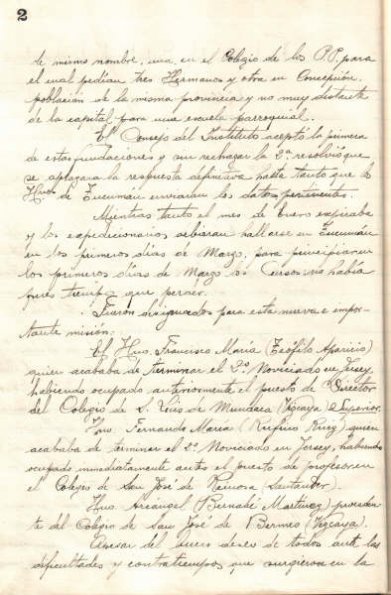 2
de mismo nombre, una, en el Colegio de los P.P. para
el cual pedían tres Hermanos y otra en Concepción
población de la misma provincia y no muy distante
de la capital, para una escuela parroquial.
El Consejo del Instituto aceptó la primera
de estas fundaciones y sin rechazar la 2ª resolvió que
se aplazara la respuesta definitiva hasta tanto que los
Hnos de Tucumán enviaran los datos pertinentes.
Mientras tanto el mes de Enero expiraba
y los expedicionarios debían hallarse en Tucumán
en los primeros días de Marzo, para principiar en
los primeros días de Marzo los Cursos no había
pues tiempo que perder.
Fueron designados para esta nueva e impor-
tante misión:
El Hno. Francisco María (Teófilo Aparicio)
quien acababa de terminar el 2º Noviciado en Jersey,
habiendo ocupado anteriormente el puesto de Director
del Colegio de S. Luis de Mundaca (Vizcaya) Superior.
Hno. Fernando María (Rufino Ruiz) quien
acababa de terminar el 2º Noviciado en Jersey, habiendo
ocupado inmediatamente antes el puesto de profesor en
el Colegio de San José de Reinosa (Santander).
Hno Arcángel (Bernabé Martínez) proceden-
te del Colegio de San José de Bermeo (Vizcaya).
Apesar del deseo de todos ante las
dificultades y contratiempos que surgieron en la